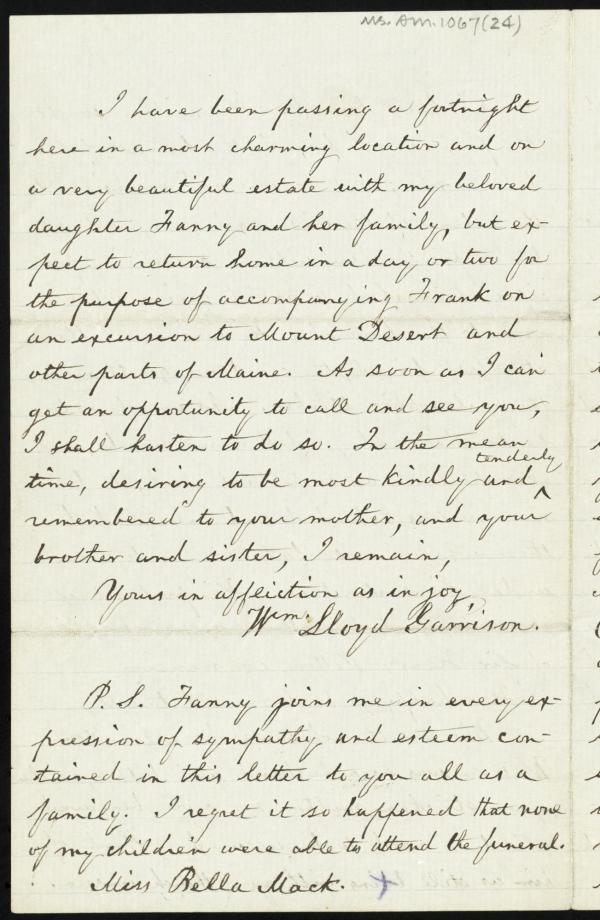 Ms. Am. 1067(24)
I have been passing a fortnight
here in a most charming location and on
a very beautiful estate with my beloved
daughter Fanny and her family, but ex-
pect to return home in a day or two for
the purpose of accompanying Frank on
an excursion to Mount Desert and
other parts of Maine. As soon as I can
get an opportunity to call and see you,
I shall hasten to do so. In the mean
tenderly
time, desiring to be most kindly and ^
remembered to your mother, and your
brother and sister, I remain,
Yours in affliction as in joy,
Wm. Lloyd Garrison.
P. S. Fanny joins me in every ex-
pression of sympathy and esteem con-
tained in this letter to you all as a
family. I regret it so happened that none
of my children were able to attend the funeral.
Miss Bella Mack. x